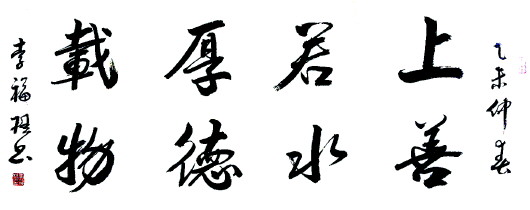 乙未仲春
上善
若水
厚德
載物
李福 书